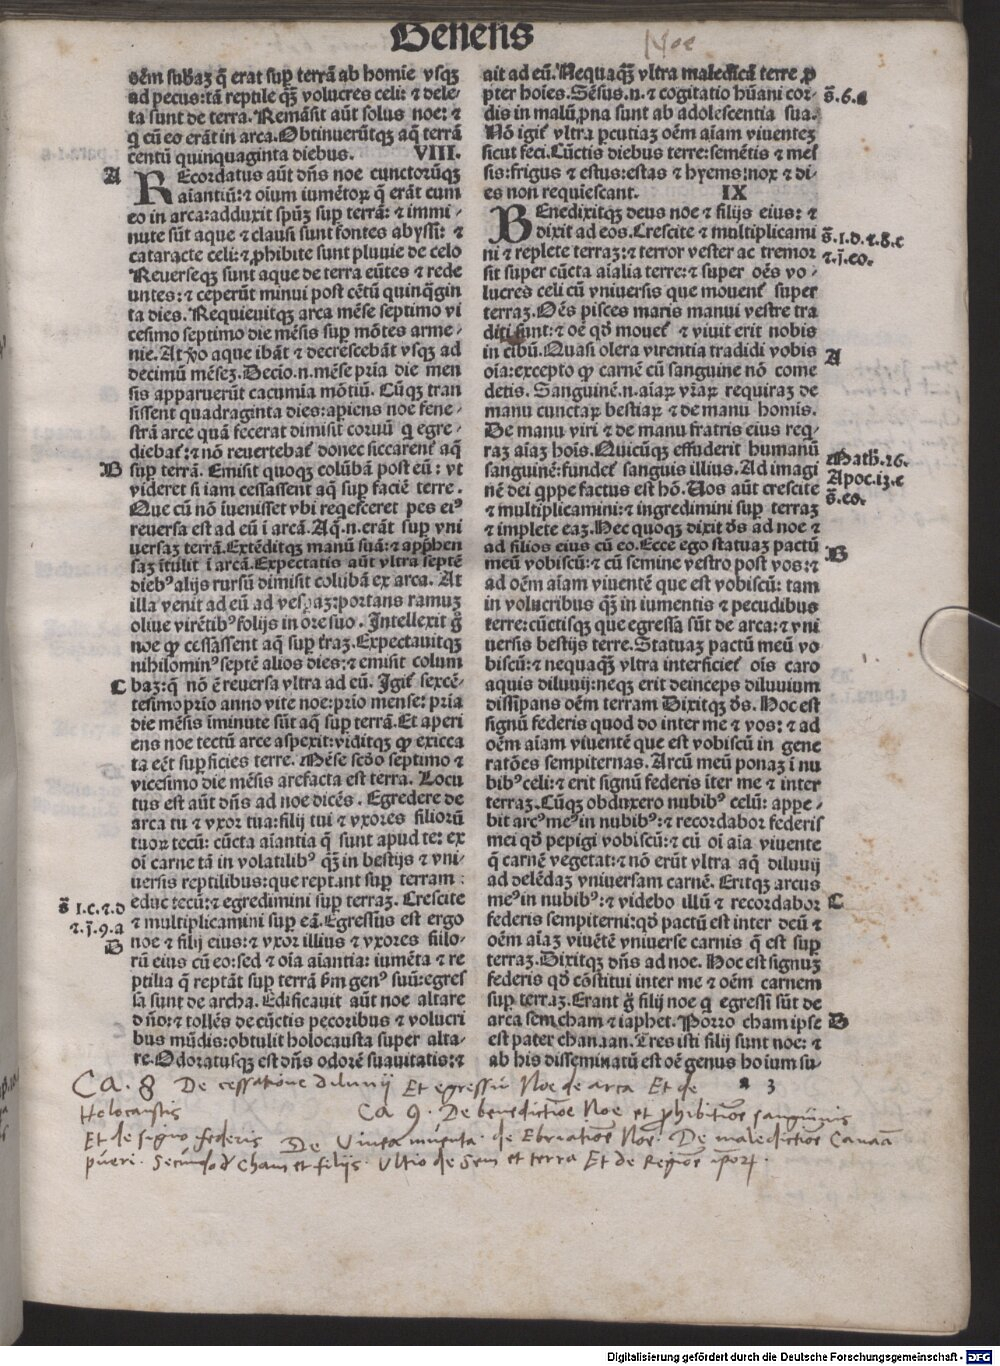 Genesis
Noe
oēm subaꝫ q̄ erat suꝑ terrā ab homīe vsqꝫ
ad pecus:tā reptile qꝫ̄ volucres celi: ⁊ dele⸗
ta sunt de terra. Remāsit aūt solus noe: ⁊
q̇ cū eo erāt in arca. Obtinuerūtqꝫ aq̄ terrā
centū quinquaginta diebus. VIII.
A
REcordatus aūt dn̄s noe cunctorūqꝫ
aīantiū: ⁊ oīum iumētoꝝ q̄ erāt cum
eo in arca:adduxit spūꝫ suꝑ terrā: ⁊ immi⸗
nute sūt aque ⁊ clausi sunt fontes abyssi: ⁊
cataracte celi: ⁊ ꝓhibite sunt pluuie de celo
Reuerseqꝫ sunt aque de terra eūtes ⁊ rede
untes: ⁊ ceperūt minui post cētū quinq̄gin
ta dies. Requieuitqꝫ arca mēse septimo vi
cesimo septimo die mēsis suꝑ mōtes arme⸗
nie. At ꝟo aque ibāt ⁊ decrescebāt vsqꝫ ad
decimū mēseꝫ. Decīo .n. mēse pꝛīa die men
sis apparuerūt cacumīa mōtiū. Cūqꝫ tran
sissent quadraginta dies:aperiens noe fene⸗
strā arce quā fecerat dimisit coruū q̇ egre⸗
diebat᷑: ⁊ nō reuertebat᷑ donec siccarent᷑ aq̄
B
suꝑ terrā. Emisit quoqꝫ colūbā post eū: vt
videret si iam cessassent aq̄ suꝑ faciē terre.
Que cū nō īuenisset vbi reqͥesceret pes eiꝰ
reuersa est ad eū ī arcā. Aq̄ .n. erāt suꝑ vni
uersaꝫ terrā. Extēditqꝫ manū suā: ⁊ apphen
saꝫ ītulit ī arcā. Expectatis aūt vltra septē
diebꝰ alijs rursū dimisit colūbā ex arca. At
illa venit ad eū ad vesꝑaꝫ:portans ramuꝫ
oliue virētibꝰ folijs in oꝛe suo. Intellexit g̊
noe ꝙ cessassent aq̄ suꝑ traꝫ. Expectauitqꝫ
nihilominꝰ septē alios dies: ⁊ emisit colum
C
baꝫ:q̄ nō ē reuersa vltra ad eū. Igit᷑ sexcē⸗
tesimo pꝛīo anno vite noe:pꝛīo mense: pꝛīa
die mēsis īminute sūt aq̄ suꝑ terrā. Et aperi
ens noe tectū arce aspexit:viditqꝫ ꝙ exicca
ta eēt suꝑficies terre. Mēse scd̄o septimo ⁊
vicesimo die mēsis arefacta est terra. Locu
tus est aūt dn̄s ad noe dicēs. Egredere de
arca tu ⁊ vxor tua:filij tui ⁊ vxores filioꝛū
tuoꝝ tecū: cūcta aīantia q̄ sunt apud te: ex
oī carne tā in volatilibꝰ qꝫ̄ in bestijs ⁊ vni⸗
uersis reptilibus:que reptant suꝑ terram:
educ tecū: ⁊ egredimini suꝑ terraꝫ. Crescite
s̄ 1.c.⁊.d
⁊ multiplicamini suꝑ eā. Egressus est ergo
⁊.j.9.a
noe ⁊ filij eius: ⁊ vxor illius ⁊ vxores filio⸗
D
rū eius cū eo:sed ⁊ oīa aīantia: iumēta ⁊ re
ptilia q̄ reptāt suꝑ terrā ẜm genꝰ suū:egres
sa sunt de archa. Edificauit aūt noe altare
dn̄o: ⁊ tollēs de cūctis pecoribus ⁊ volucri
bus mūdis:obtulit holocausta super alta⸗
re. Odoratusqꝫ est dn̄s odorē suauitatis: ⁊
ait ad eū. Nequaqꝫ̄ vltra maledicā terre ꝓ
pter hoīes. Sēsus .n. ⁊ cogitatio hūani cor⸗
s̄.6.a
dis in malū ꝓna sunt ab adolescentia sua.
Nō igit᷑ vltra ꝑcutiaꝫ oēm aīam viuenteꝫ
sicut feci. Cūctis diebus terre:semētis ⁊ mes
sis:frigus ⁊ estus:estas ⁊ hyems:nox ⁊ di⸗
es non requiescant. IX
BEnedixitqꝫ deus noe ⁊ filijs eius: ⁊
dixit ad eos. Crescite ⁊ multiplicami
s̄.1.d.⁊.8.c
ni ⁊ replete terraꝫ: ⁊ terror vester ac tremor
⁊.j.eo.
sit super cūcta aīalia terre: ⁊ super oēs vo⸗
lucres celi cū vniuersis que mouent᷑ super
terraꝫ. Oēs pisces maris manui vestre tra
diti sunt: ⁊ oē qd̄ mouet᷑ ⁊ viuit erit nobis
in cibū. Quasi olera virentia tradidi vobis
A
oīa:excepto ꝙ carnē cū sanguine nō come
detis. Sanguinē .n. aīaꝝ vr̄aꝝ requiraꝫ de
manu cunctaꝝ bestiaꝝ ⁊ de manu homīs.
De manu viri ⁊ de manu fratris eius reqͥ⸗
raꝫ aīaꝫ hoīs. Quicūqꝫ effuderit humanū
Math̄.26.
sanguinē:fundet᷑ sanguis illius. Ad imagi
Apoc.13.c
nē dei qͥppe factus est hō. Uos aūt crescite
s̄.eo.
⁊ multiplicamini: ⁊ ingredimini suꝑ terraꝫ
⁊ implete eaꝫ. Hec quoqꝫ dixit d̄s ad noe ⁊
ad filios eius cū eo. Ecce ego statuaꝫ pactū
B
meū vobiscū: ⁊ cū semine vestro post vos: ⁊
ad oēm aīam viuentē que est vobiscū: tam
in volucribus qꝫ̄ in iumentis ⁊ pecudibus
terre:cūctisqꝫ que egressa sūt de arca: ⁊ vni
uersis bestijs terre. Statuaꝫ pactū meū vo
biscū: ⁊ nequaqꝫ̄ vltra interficiet᷑ oīs caro
aquis diluuij:neqꝫ erit deinceps diluuium
dissipans oēm terram Dixitqꝫ d̄s. Hoc est
signū federis quod do inter me ⁊ vos: ⁊ ad
oēm aīam viuentē que est vobiscū in gene
ratōes sempiternas. Arcū meū ponaꝫ ī nu
bibꝰ celi: ⁊ erit signū federis īter me ⁊ inter
terraꝫ. Cūqꝫ obduxero nubibꝰ celū: appe⸗
bit arcꝰ meꝰ in nubibꝰ: ⁊ recordabor federis
mei qd̄ pepigi vobiscū: ⁊ cū oī aīa viuente
q̄ carnē vegetat: ⁊ nō erūt vltra aq̄ diluuij
ad delēdaꝫ vniuersam carnē. Eritqꝫ arcus
meꝰ in nubibꝰ: ⁊ videbo illū ⁊ recordabor
C
federis sempiterni:qd̄ pactū est inter deū ⁊
oēm aīaꝫ viuētē vniuerse carnis q̄ est suꝑ
terraꝫ. Dixitqꝫ dn̄s ad noe. Hoc est signuꝫ
federis qd̄ cōstitui inter me ⁊ oēm carnem
suꝑ terraꝫ. Erant g̊ filij noe q̇ egressi sūt de
arca sem cham ⁊ iaphet. Porro cham ipse
D
est pater chanaan. Tres isti filij sunt noe: ⁊
ab his disseminatū est oē genus hoīum su⸗
a 3
Ca. 8 De cessatione diluuij Et egressu Noe de arca Et de
Holocaustis Ca 9. De benedictiōe Noe et ꝓhibitiōe sanguinis
Et de signo federis De Vinea inuenta. de Ebriatiōe Noe. De maledictiōe Canaā
pueri. Cham et filijs. Ultio de Sem et terra Et de Regiōe
Digitalisierung gefördert durch die Deutsche Forschungsgemeinschaft - DFG